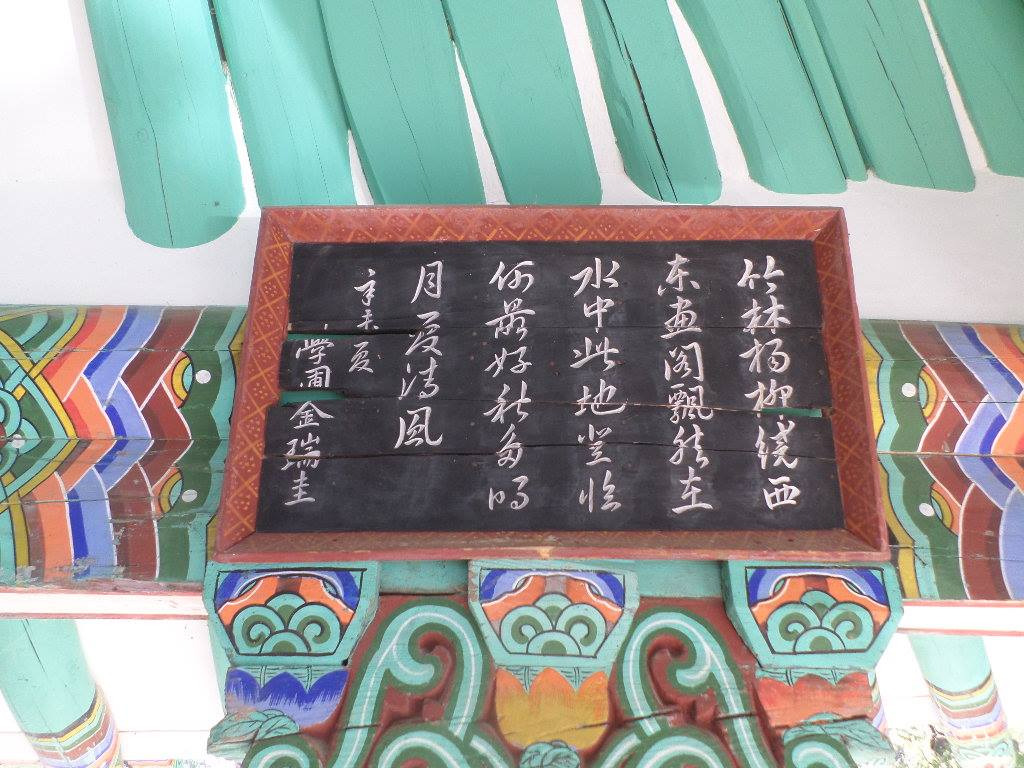 竹林楊柳繞西
東畫閣飄然在
水中此地登臨
何最好秋多明
月夏清風
辛未夏
學圃 金瑞圭